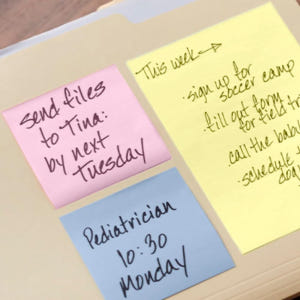 send files
to Tina:
by next
Tuesday
Pediatrician
10:30
Monday
This week →
· sign up for
soccer camp
· fill out form
for field
call the
· schedule